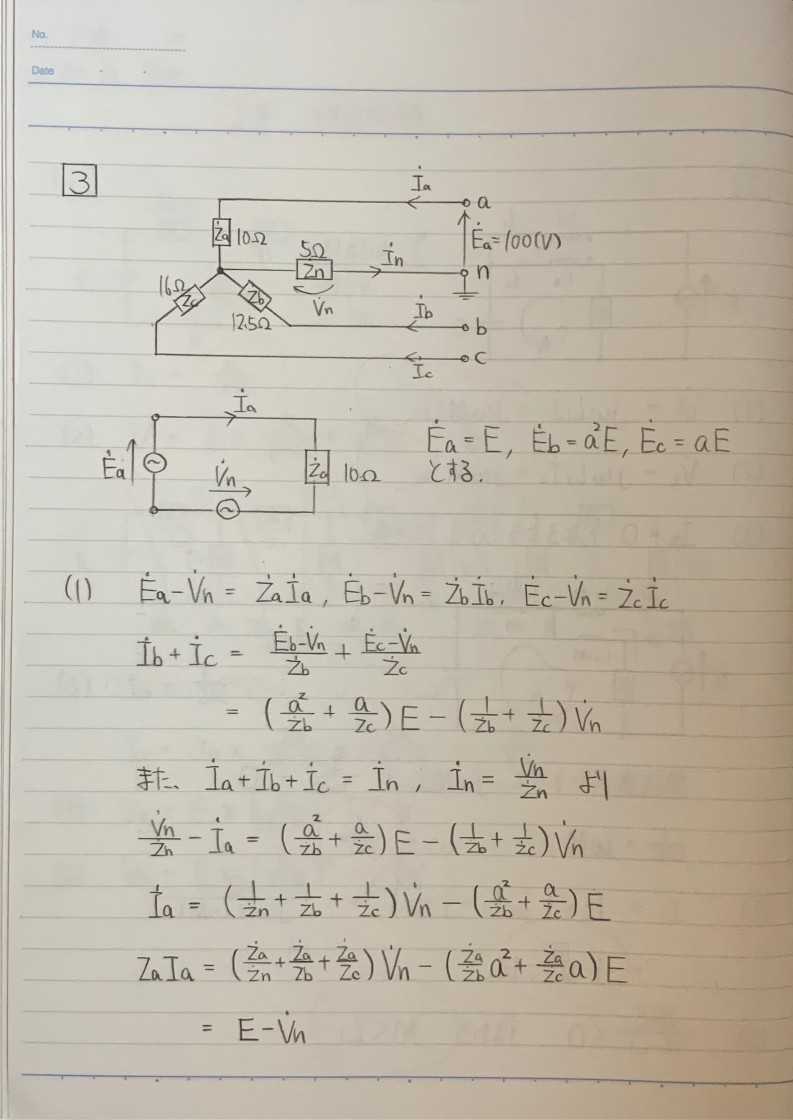 No.
Date
3
İa
a
Ża 10Ω
Ėa=100(V)
5Ω
Zn
İn
n
16Ω
Zc
Zb
V̇n
12.5Ω
İb
b
c
İc
İa
Ėa
V̇n
Ża 10Ω
Ėa = E, Ėb = a²E, Ėc = aE
とする.
(1) Ėa-V̇n = Żaİa, Ėb-V̇n = Żbİb, Ėc-V̇n = Żcİc
İb + İc = (Ėb-V̇n)/Żb + (Ėc-V̇n)/Żc
= (a²/Żb + a/Żc)E - (1/Żb + 1/Żc)V̇n
また、 İa+İb+İc = İn, İn = V̇n/Żn より
V̇n/Żn - İa = (a²/Żb + a/Żc)E - (1/Żb + 1/Żc)V̇n
İa = (1/Żn + 1/Żb + 1/Żc)V̇n - (a²/Żb + a/Żc)E
ZaIa = (Ża/Żn + Ża/Żb + Ża/Żc)V̇n - (Ża/Żb a² + Ża/Żc a)E
= E-V̇n